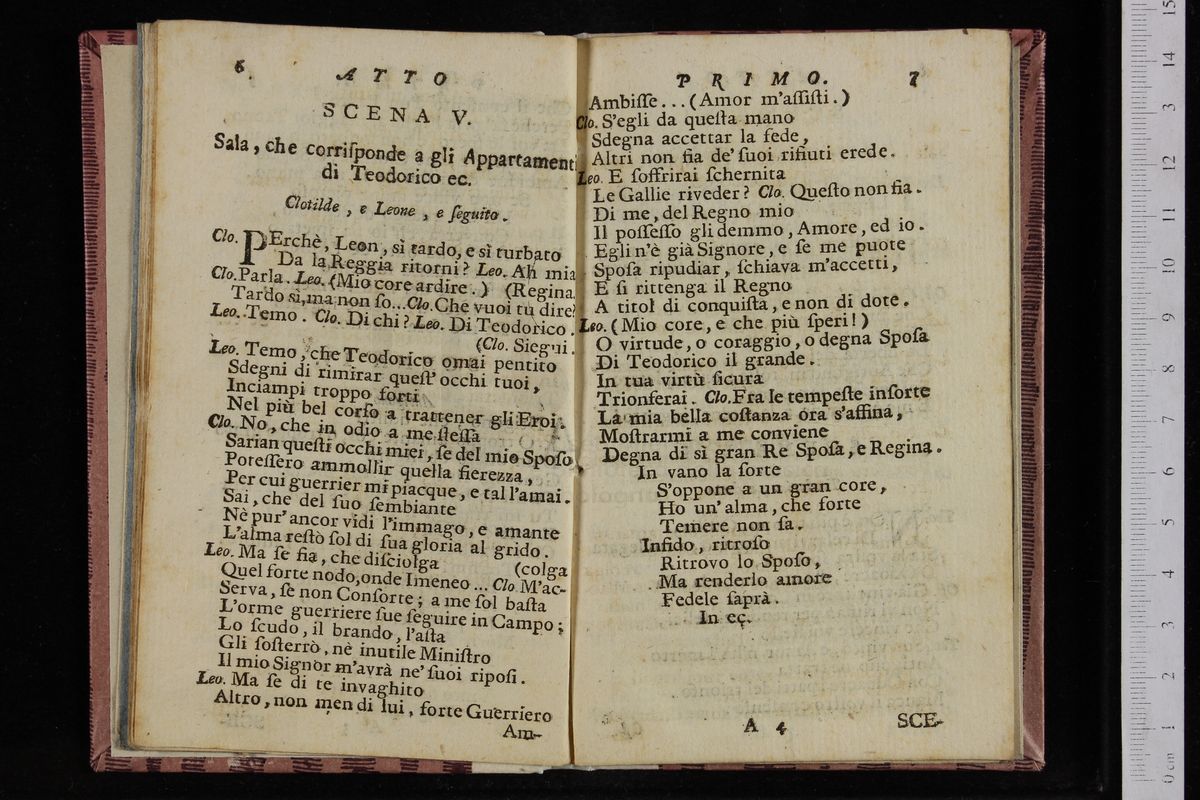 6. ATTO
SCENA V.
Sala, che corriſponde a gli Appartamenti
di Teodorico ec.
Clotilde, e Leone, e ſeguito.
Clo. PErchè, Leon, sì tardo, e sì turbato
Da la Reggia ritorni? Leo. Ah mia
Clo. Parla. Leo. (Mio core ardire.) (Regina.
Tardo sì, ma non ſo... Clo. Che vuoi tu dire?
Leo. Temo. Clo. Di chi? Leo. Di Teodorico.
(Clo. Siegui.
Leo. Temo, che Teodorico omai pentito
Sdegni di rimirar queſt' occhi tuoi,
Inciampi troppo forti
Nel più bel corſo a trattener gli Eroi.
Clo. No, che in odio a me ſteſſa
Sarian queſti occhi miei, ſe del mio Spoſo
Poteſſero ammollir quella fierezza,
Per cui guerrier mi piacque, e tal l'amai.
Sai, che del ſuo ſembiante
Nè pur' ancor vidi l'immago, e amante
L'alma reſtò ſol di ſua gloria al grido.
Leo. Ma ſe fia, che diſciolga (colga
Quel forte nodo, onde Imeneo... Clo M'ac-
Serva, ſe non Conſorte; a me ſol baſta
L'orme guerriere ſue ſeguire in Campo;
Lo ſcudo, il brando, l'aſta
Gli ſoſterrò, nè inutile Miniſtro
Il mio Signor m'avrà ne' ſuoi ripoſi.
Leo. Ma ſe di te invaghito
Altro, non men di lui, forte Guerriero
Am-
PRIMO. 7
Ambiſſe... (Amor m'aſſiſti.)
Clo. S'egli da queſta mano
Sdegna accettar la fede,
Altri non fia de' ſuoi rifiuti erede.
Leo. E ſoffrirai ſchernita
Le Gallie riveder? Clo. Queſto non fia.
Di me, del Regno mio
Il poſſeſſo gli demmo, Amore, ed io.
Egli n'è già Signore, e ſe me puote
Spoſa ripudiar, ſchiava m'accetti,
E ſi rittenga il Regno
A titol di conquiſta, e non di dote.
Leo. (Mio core, e che più ſperi!)
O virtude, o coraggio, o degna Spoſa
Di Teodorico il grande.
In tua virtù ſicura
Trionferai. Clo. Fra le tempeſte inſorte
La mia bella coſtanza ora s'affina,
Moſtrarmi a me conviene
Degna di sì gran Re Spoſa, e Regina.
In vano la ſorte
S'oppone a un gran core,
Ho un' alma, che forte
Temere non ſa.
Infido, ritroſo
Ritrovo lo Spoſo,
Ma renderlo amore
Fedele ſaprà.
In ec.
A 4 SCE-